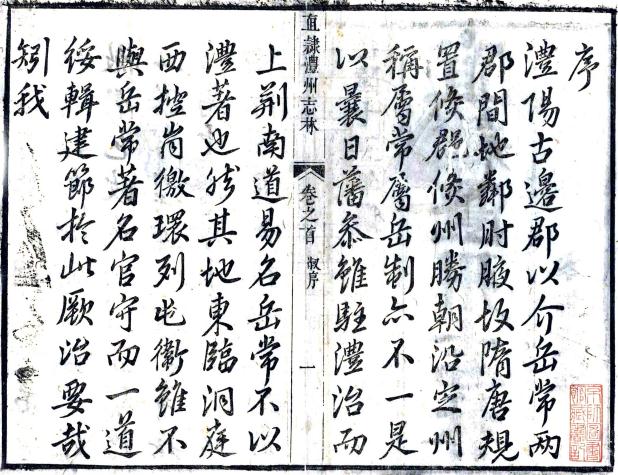 序
澧陽古邊郡以介岳常兩
郡間地鄰肘腋故隋唐規
置倏郡倏州勝朝沿定州
稱屬常屬岳制亦不一是
以曩日藩叅雖駐澧治而
直隸澧州志林 卷之首 敘序 一
上荊南道易名岳常不以
澧著也然其地東臨洞庭
西控崗徼環列屯衞雖不
與岳常著名官守而一道
綏輯建節於此厥治要哉
矧我